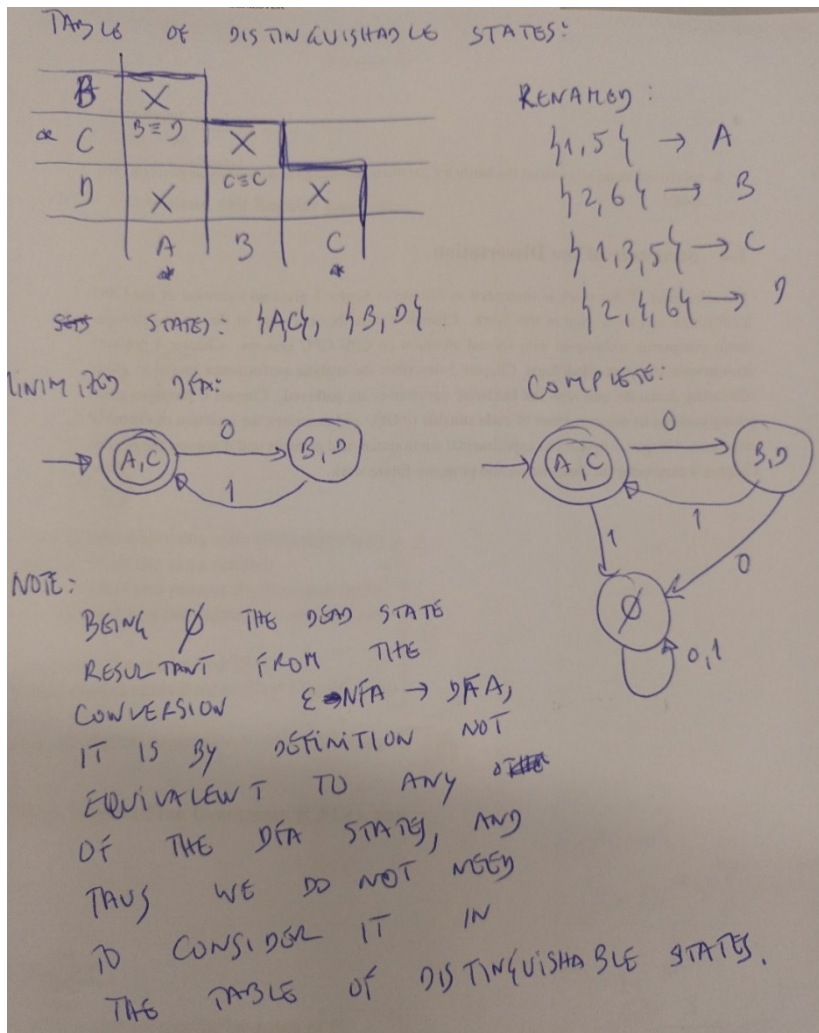 TABLE OF DISTINGUISHABLE STATES:
B X
* C B≡D X
D X C≡C X
A B C
* *
RENAMED:
{1,5} → A
{2,6} → B
{1,3,5} → C
{2,4,6} → D
STATES: {A,C}, {B,D}
MINIMIZED DFA:
A,C 0 B,D
1
COMPLETE:
A,C 0 B,D
1
1 0
∅ 0,1
NOTE:
BEING ∅ THE DEAD STATE
RESULTANT FROM THE
CONVERSION ε-NFA → DFA,
IT IS BY DEFINITION NOT
EQUIVALENT TO ANY
OF THE DFA STATES, AND
THUS WE DO NOT NEED
TO CONSIDER IT IN
THE TABLE OF DISTINGUISHABLE STATES.